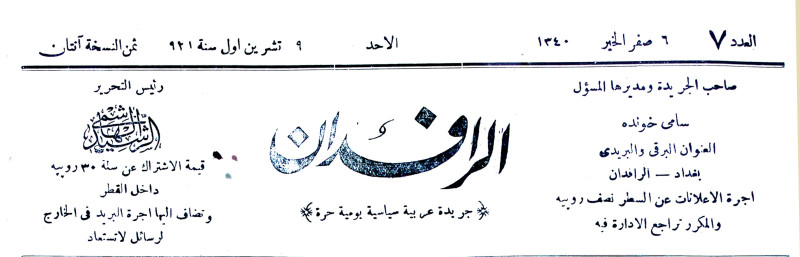 العدد ٧ ٦ صفر الخير ١٣٤٠ الاحد ٩ تشرين اول سنة ٩٢١ ثمن النسخة آنتان
صاحب الجريدة ومديرها المسؤل
سامى خونده
العنوان البرقى والبريدى
بغداد — الرافدان
اجرة الاعلانات عن السطر نصف روپيه
والمكرر تراجع الادارة فيه
الرافدان
جريدة عربية سياسية يومية حرة
رئيس التحرير
قيمة الاشتراك عن سنة ٣٠ روپيه
داخل القطر
وتضاف اليها اجرة البريد فى الخارج
لرسائل لاتستعاد